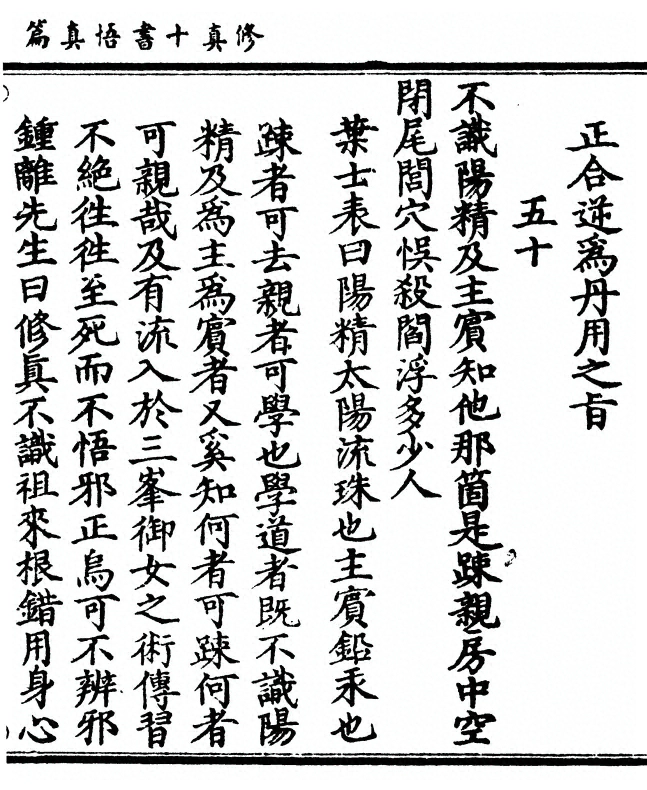 修真十書悟真篇
正合逆爲丹用之旨
五十
不識陽精及主賓知他那箇是踈親房中空
閉尾閭穴悮殺閻浮多少人
葉士表曰陽精太陽流珠也主賓鉛汞也
踈者可去親者可學也學道者既不識陽
精及爲主爲賓者又奚知何者可踈何者
可親哉及有流入於三峯御女之術傳習
不絶徃徃至死而不悟邪正烏可不辨邪
鍾離先生曰修真不識祖來根錯用身心